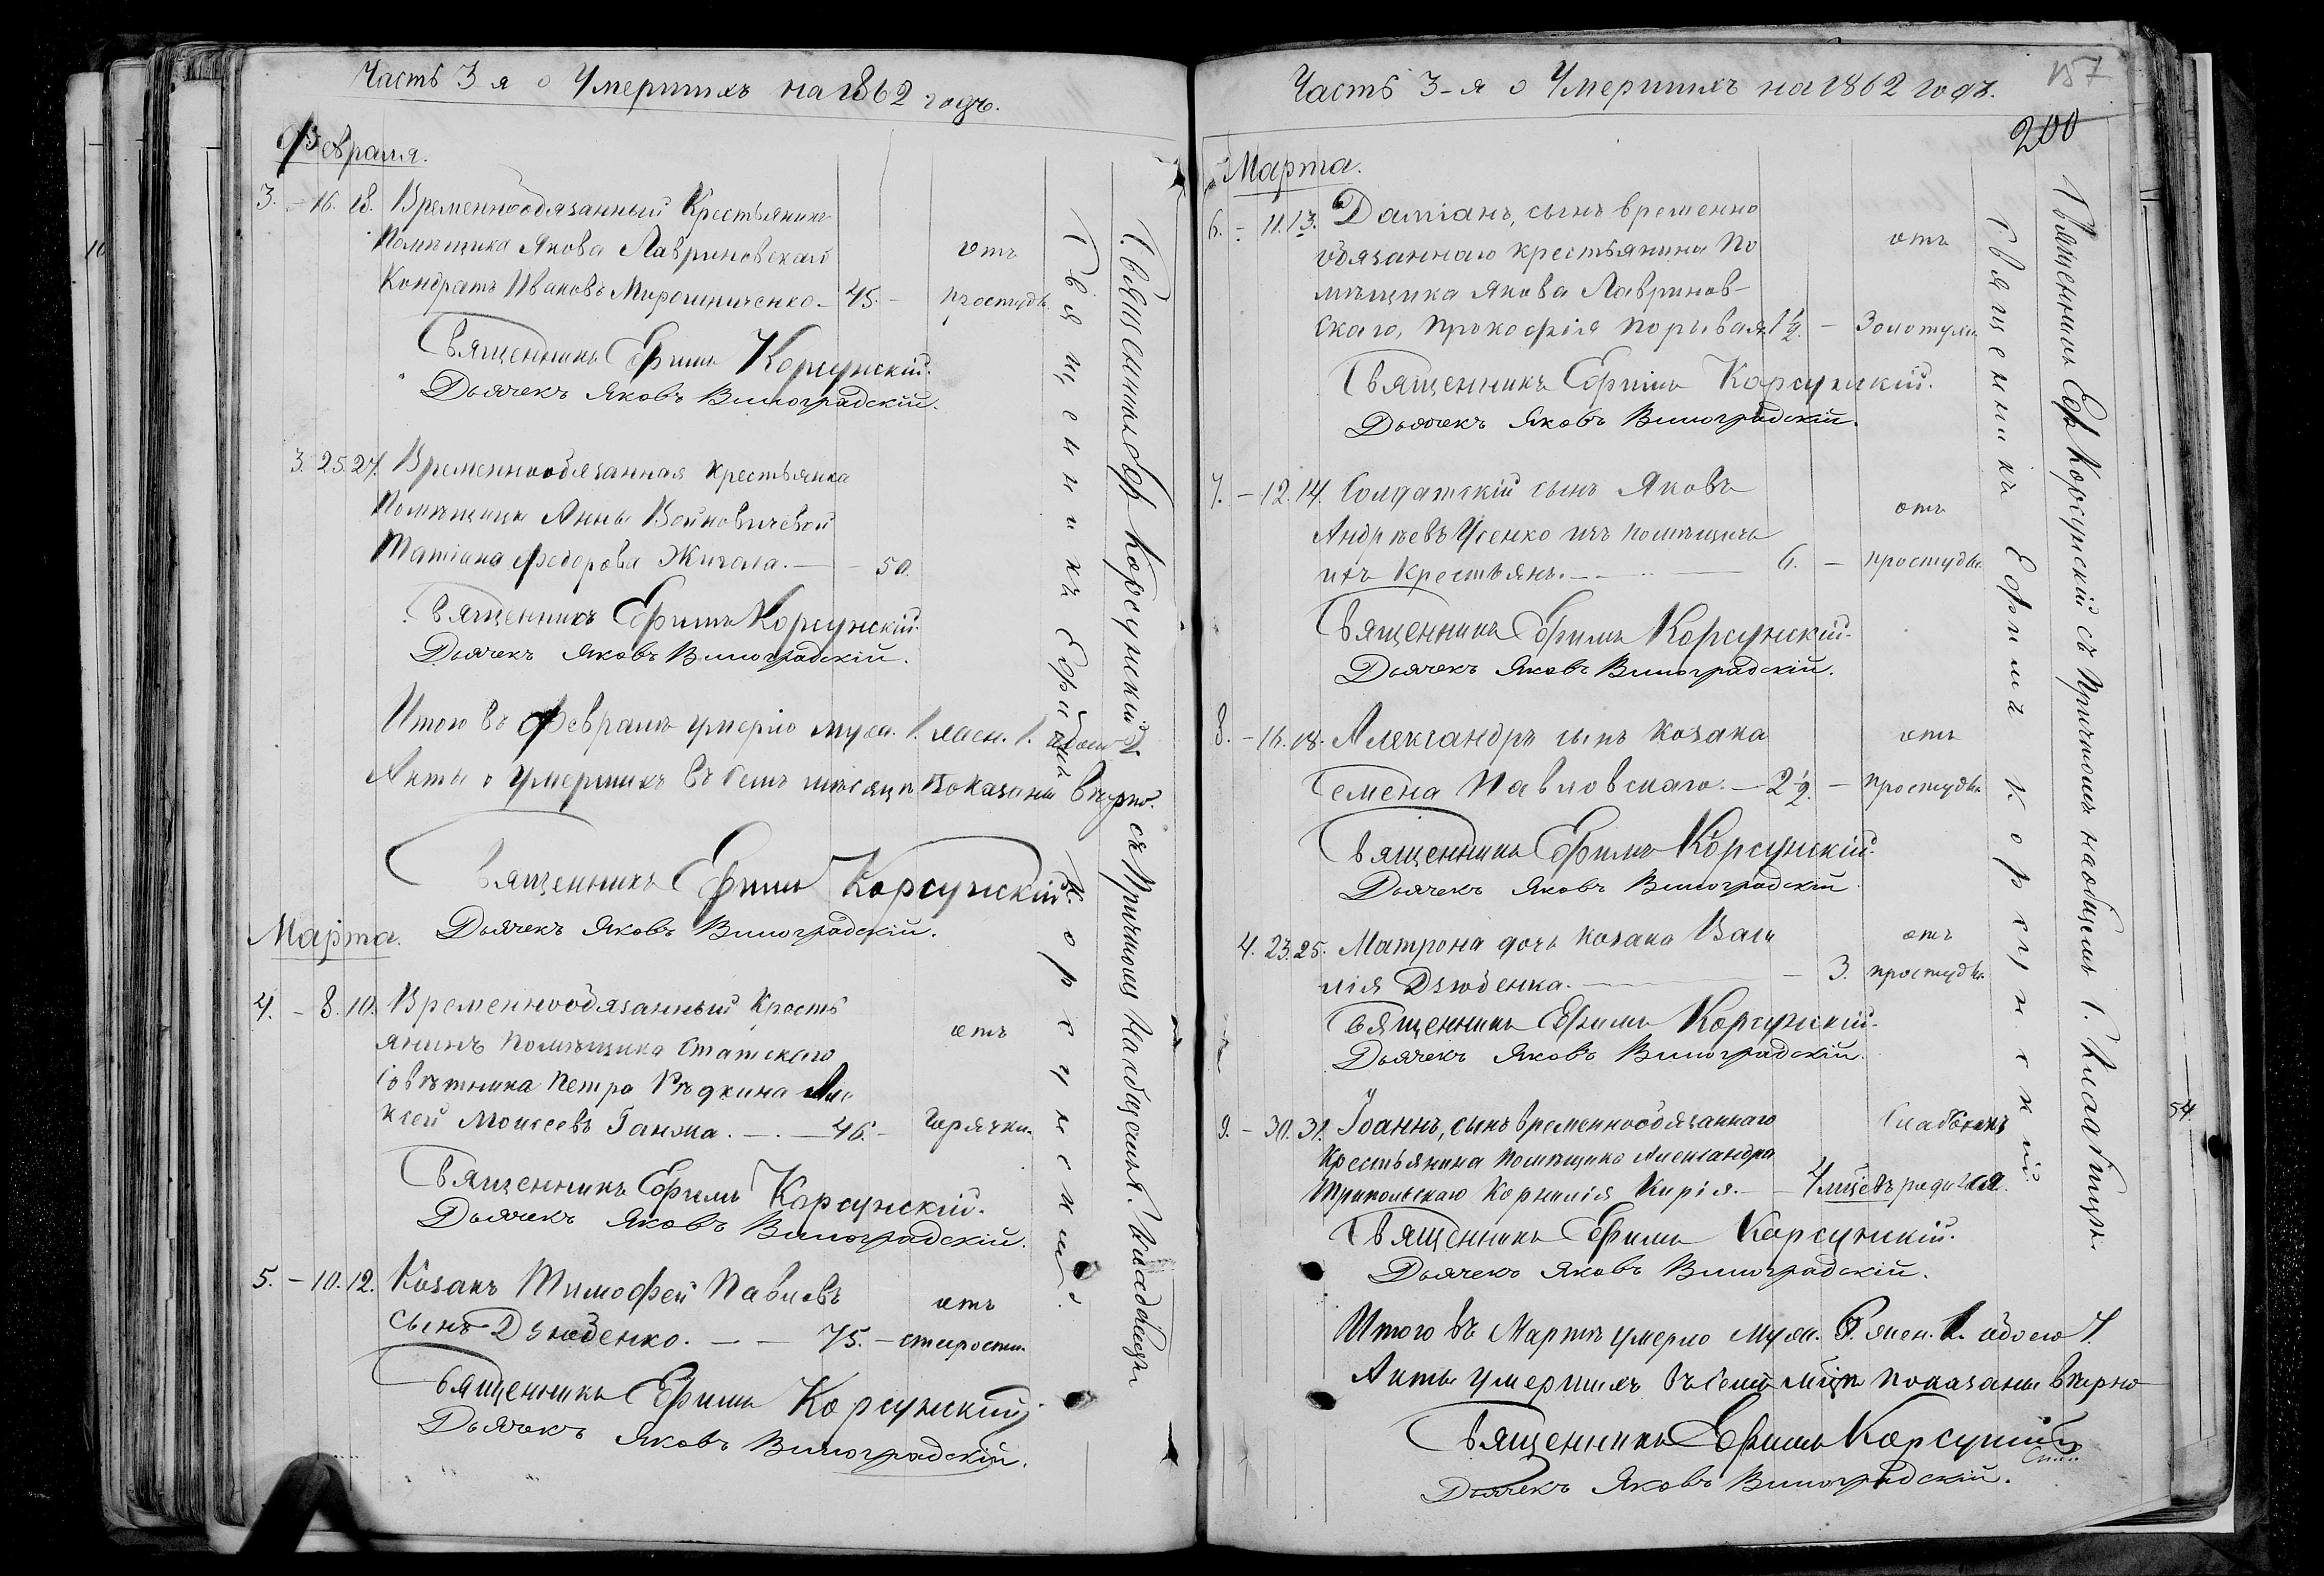 Часть 3-я о Умершихъ на 1862 годъ.
Февраля.
3. - 16. 18. Временнообязанный Крестьянинъ
Помѣщика Якова Лавриновскаго отъ
Кондратъ Ивановъ Мирошниченко. - 45. - простуды
Священникъ Ефимъ Корсунскій.
Дьячекъ Яковъ Виноградскій.
3. 25. 27. Временнообязанная крестьянка
Помѣщицы Анны Войновичевой
Татіана Федорова Жигала. - 50.
Священникъ Ефимъ Корсунскій.
Дьячекъ Яковъ Виноградскій.
Итого въ Февралѣ умерло муж. 1. жен. 1. обоего 2.
Акты о умершихъ въ семъ мѣсяцѣ показаны вѣрно.
Священникъ Ефимъ Корсунскій
Дьячекъ Яковъ Виноградскій.
Марта.
4. - 8. 10. Временнообязанный Кресть
янинъ помѣщика Статскаго отъ
Совѣтника Петра Рѣдкина Але
ксей Моисеевъ Ганжа. - 46. - Горячки.
Священникъ Ефимъ Корсунскій.
Дьячекъ Яковъ Виноградскій.
5. - 10. 12. Козакъ Тимофей Павловъ отъ
сынъ Дзюбенко. - - 75. - старости.
Священникъ Ефимъ Корсунскій
Дьячекъ Яковъ Виноградскій.
Священникъ Ефимій Корсунскій.
Священникъ Еф. Корсунскій съ Причтомъ
Часть 3-я о Умершихъ на 1862 годъ.
157
200
Марта.
6. - 11. 13. Даміанъ, сынъ временно
обязаннаго крестьянина По отъ
мѣщика Якова Лавринов-
скаго, Прокофія Порывая 1 1/2. - Золотухи
Священникъ Ефимъ Корсунскій.
Дьячекъ Яковъ Виноградскій.
7. - 12. 14. Солдатскій сынъ Яковъ отъ
Андреевъ Усенко изъ помѣщичь
ихъ Крестьянъ. - 6. - простуды.
Священникъ Ефимъ Корсунскій.
Дьячекъ Яковъ Виноградскій.
8. - 16. 18. Александръ сынъ козака отъ
Семена Павловскаго. - 2 1/2. - простуды.
Священникъ Ефимъ Корсунскій.
Дьячекъ Яковъ Виноградскій
4. 23. 25. Матрона дочь козака Васи отъ
лія Дзюбенка. - 3. простуды.
Священникъ Ефимъ Корсунскій.
Дьячекъ Яковъ Виноградскій.
9. - 30. 31. Іоаннъ, сынъ временнообязаннаго Слабымъ
Крестьянина помѣщика Александра
Трипольскаго Корнилія Кирія. - 4 родился.
Священникъ Ефимъ Корсунскій.
Дьячекъ Яковъ Виноградскій.
Итого въ Мартѣ умерло муж. 6. жен. 1. обоего 7.
Акты умершихъ въ семъ показаны вѣрно
Священникъ Ефимъ Корсунскій
Дьячекъ Яковъ Виноградскій.
Священникъ Ефимій Корсунскій
Священникъ Еф. Корсунскій съ Причтомъ
54.